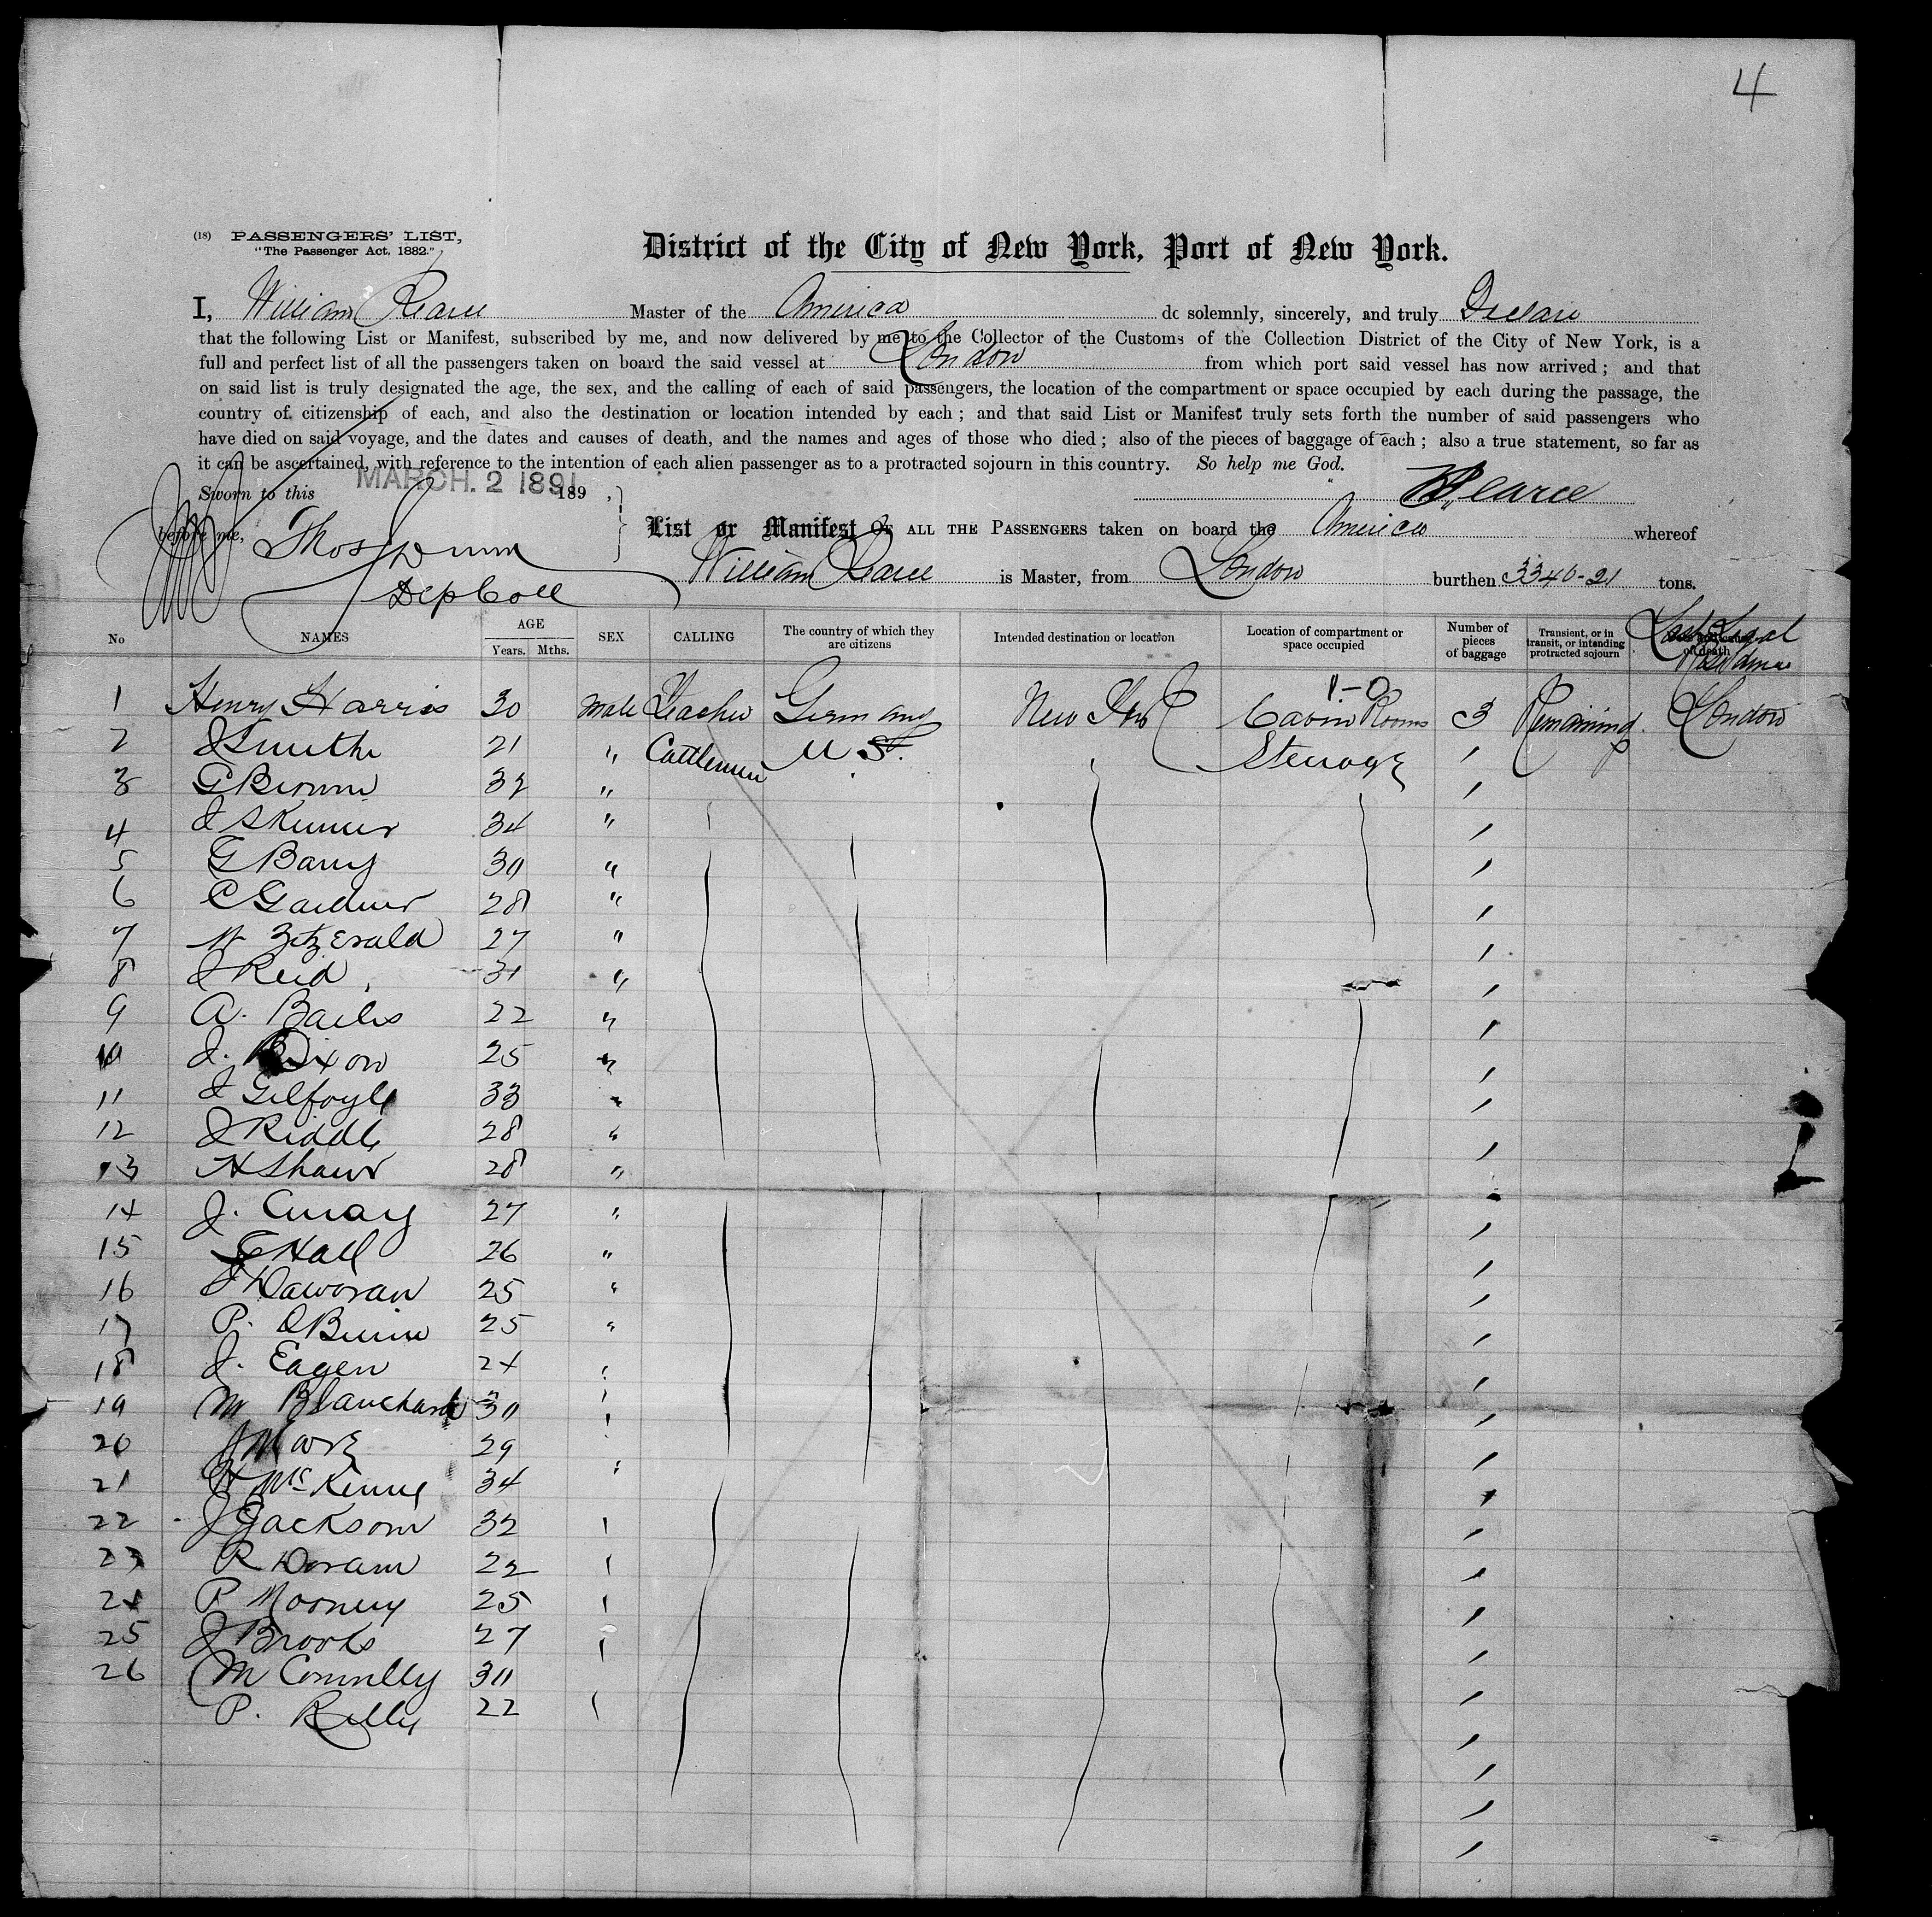 4
(18) PASSENGERS' LIST,
"The Passenger Act, 1882."
District of the City of New York, Port of New York.
I, William Pearce Master of the America do solemnly, sincerely, and truly Declare
that the following List or Manifest, subscribed by me, and now delivered by me to the Collector of the Customs of the Collection District of the City of New York, is a
full and perfect list of all the passengers taken on board the said vessel at London from which port said vessel has now arrived; and that
on said list is truly designated the age, the sex, and the calling of each of said passengers, the location of the compartment or space occupied by each during the passage, the
country of citizenship of each, and also the destination or location intended by each; and that said List or Manifest truly sets forth the number of said passengers who
have died on said voyage, and the dates and causes of death, and the names and ages of those who died; also of the pieces of baggage of each; also a true statement, so far as
it can be ascertained, with reference to the intention of each alien passenger as to a protracted sojourn in this country. So help me God.
Sworn to this MARCH. 2 1891 189 ,
W Pearce
before me, Thos Dunn
Dep Coll
List or Manifest OF ALL THE PASSENGERS taken on board the America whereof
William Pearce is Master, from London burthen 3340-21 tons.
No NAMES AGE Years. Mths. SEX CALLING The country of which they are citizens Intended destination or location Location of compartment or space occupied Number of pieces of baggage Transient, or in transit, or intending protracted sojourn Last Legal Residence
1 Henry Harris 30 Male Teacher Germany New York Cabin Rooms 3 Remaining London
2 J Smith 21 " Cattlemen U S. Steerage 1
3 G Brown 32 " 1
4 J Skinner 34 " 1
5 G Barry 30 " 1
6 C Gardner 28 " 1
7 W Fitzerald 27 " 1
8 J Reid 31 " 1
9 A. Bailes 22 " 1
10 J. Dixon 25 " 1
11 J Gilfoyle 33 " 1
12 J Riddle 28 " 1
13 H Shaw 28 " 1
14 J. 27 " 1
15 Hall 26 " 1
16 25 " 1
17 P. O 25 " 1
18 J. Eagen 24 " 1
19 M Blanchard 30 " 1
20 J 29 " 1
21 H McKenne 34 " 1
22 J Jackson 32 " 1
23 R Doram 22 " 1
24 P Mooney 25 " 1
25 J Brooks 27 " 1
26 M Connelly 30 1
P. Reilly 22 " 1